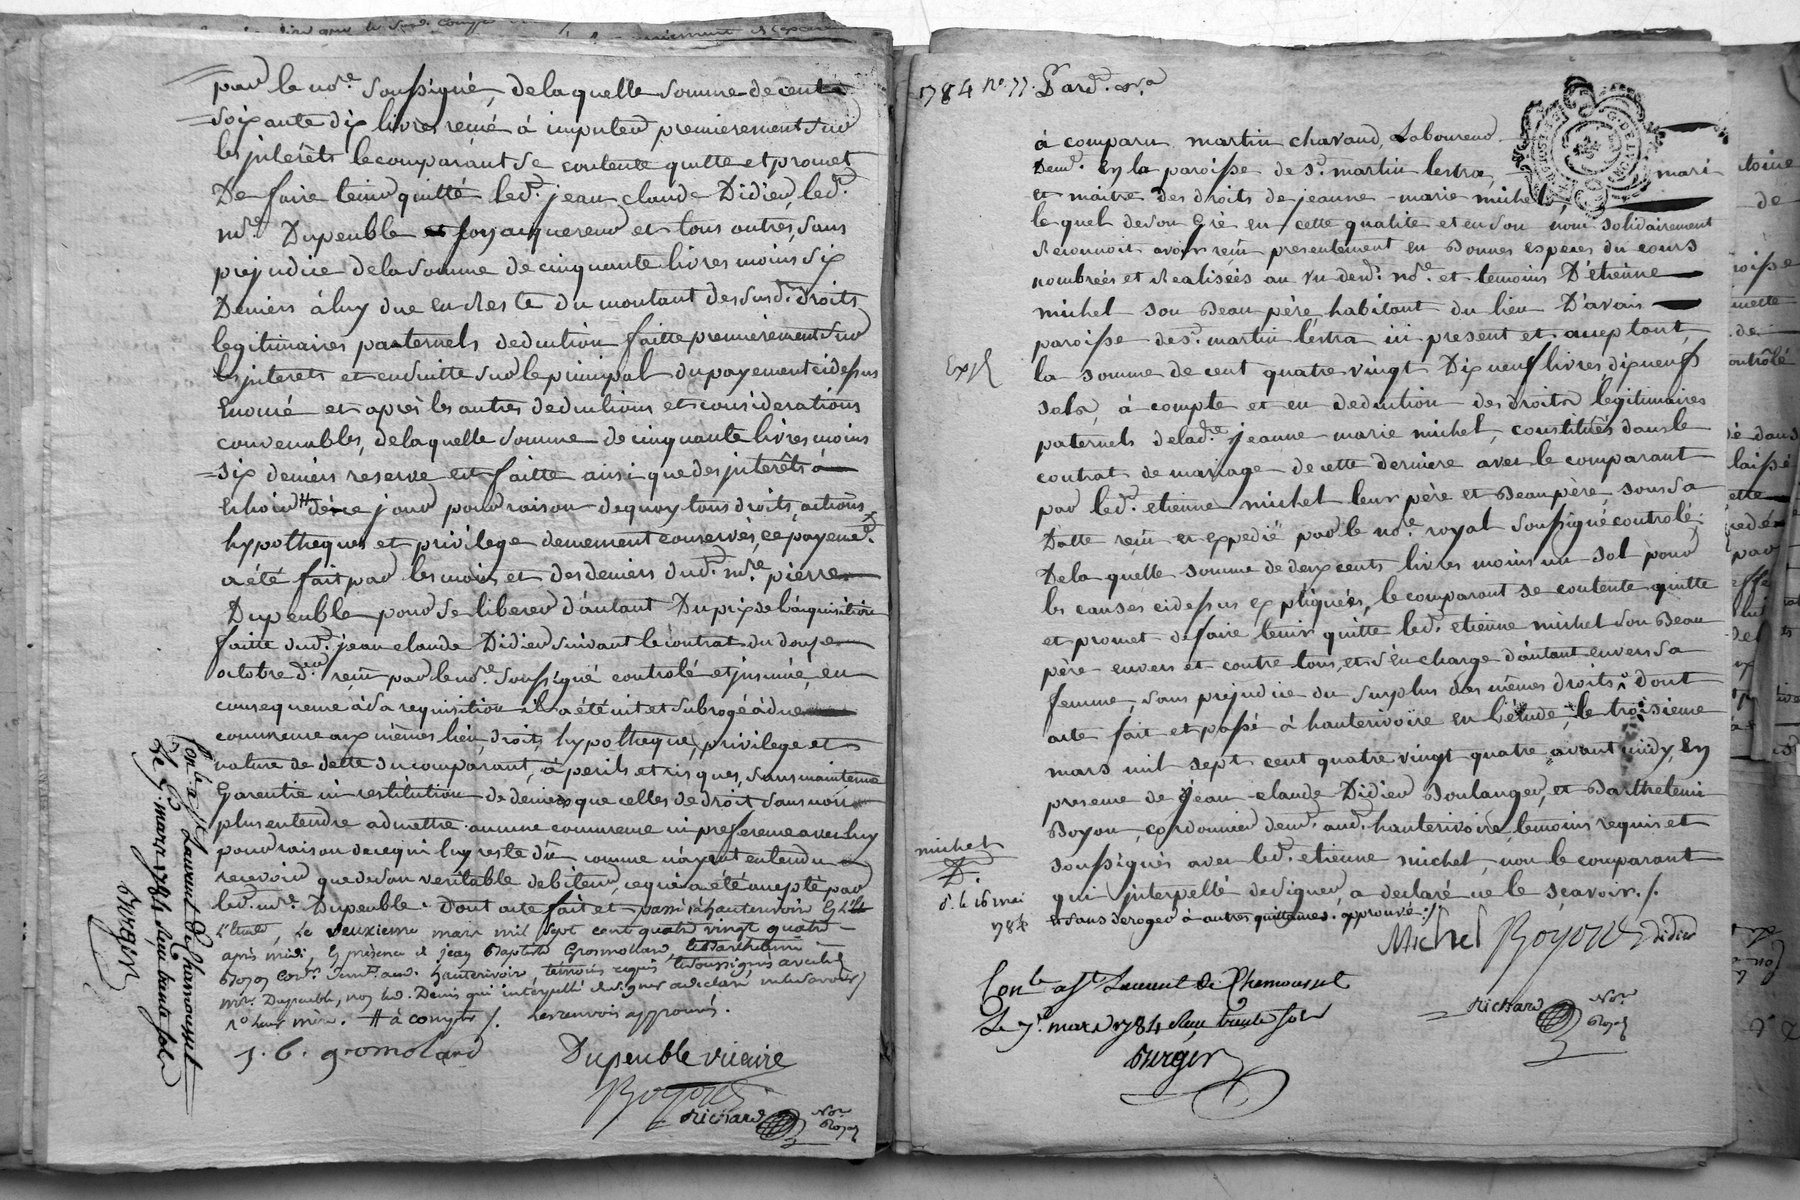 par le no.re soussigné, de laquelle somme de cent
soixante dix livres reçue à imputer premierement sur
les interêts le comparant se contente quitte et promet
De faire tenir quitte led.t jean claude Didier, led.t
m.re Dupeuble son acquereur et tous autres, sans
prejudice de la somme de cinquante livres moins six
Deniers à luy due en reste du montant des susd.ts droits
legitimaires paternels deduction faitte premierement sur
les interets et ensuitte sur le principal du payement cidessus
Enoncé et après les autres deductions et considerations
convenables, de laquelle somme de cinquante livres moins
six deniers reserve est faitte ainsi que des interêts à
Echoir # dèce jour pour raison dequoy tous droits, actions
hypotheques et privilege demeurent conservés, ce payeme.t
a été fait par les mains et des deniers dud.t m.re pierre
Dupeuble pour se liberer d'autant Du prix de l'acquisition
faitte dud.t jean claude Didier suivant le contrat du douze
octobre d.er reçu par le no.re soussigné controlé et insinué, en
consequence à sa requisition il a été mis et subrogé à due
concurrence aux mêmes lieu, droit, hypotheque, privilege et
nature de dette du comparant, à perils et risques, sans maintenue
Garentie ni restitution de deniers que celles de droit sans non
plus entendre admettre aucune concurrence ni preference avec luy
pour raison de ce qui luy reste dû comme n'ayant entendu
recevoir que de son veritable debiteur, ce qui a été accepté par
led.t m.re Dupeuble. Dont acte fait et passé à hauterivoire En
L'Etude, Le Deuxieme mars mil sept cent quatre vingt quatre
après midi, En presence de jean Baptiste Gromollard, et Barthelemi
Boyon cord.r dem.t aud.t hauterivoire, temoins requis et soussignés avec led.
m.re Dupeuble, non led. Denis qui interpellé de signer a declaré ne le savoir
# à compter /. Les renvois approuvés.
J. B. gromolard
Dupeuble vicaire
Boyon
Richard No.re Royal
Con.lé à S.t Laurent de Chamousset
Le 7. mars 1784 Reçu trente sols
Burgin
1784 n.o 77. Pard.t n.re
à comparu martin chavand, Laboureur
Dem.t En la paroisse de S.t martin lestra, mari
et maitre des droits de jeanne-marie michel,
lequel de son Gré en cette qualité et en son nom solidairement
Reconnoit avoir reçu presentement en Bonnes especes du cours
nombrées et Realisées au vu dud.t no.re et temoins D'etienne
michel son Beau père habitant du lieu D'avais
paroisse de S.t martin l'estra ici present et acceptant,
Exp.é
la somme de cent quatre vingt Dix neuf livres dixneuf
sols, à compte et en deduction des droits legitimaires
paternels de lad.te jeanne-marie michel, constitués dans le
contrat de mariage de cette derniere avec le comparant
par led.t etienne michel leur père et Beaupère sous sa
Datte reçu et expedié par le no.re royal soussigné controlé.
De la quelle somme de deux cents livres moins un sol pour
les causes cidessus expliquées, le comparant se contente quitte
et promet de faire tenir quitte led.t etienne michel son Beau
père envers et contre tous, et s'en charge d'autant envers sa
femme, sans prejudice du surplus des mêmes droits, dont
acte fait et passé à hauterivoire en l'etude, le troisieme
mars mil sept cent quatre vingt quatre avant midy, En
presence de jean claude Didier Boulanger, et Barthelemi
Boyon, cordonnier dem.t aud.t hauterivoire, temoins requis et
soussignés avec led.t etienne michel, non le comparant
qui interpellé de signer, a declaré ne le sçavoir. /.
et sans deroger à autres quittances. approuvé. /.
michel
D.
d. le 16 mai
784
Michel Boyon Didier
Richard No.re Royal
Con.lé à S.t Laurent de Chamousset
Le 7. mars 1784 Reçu trente sols
Burgin